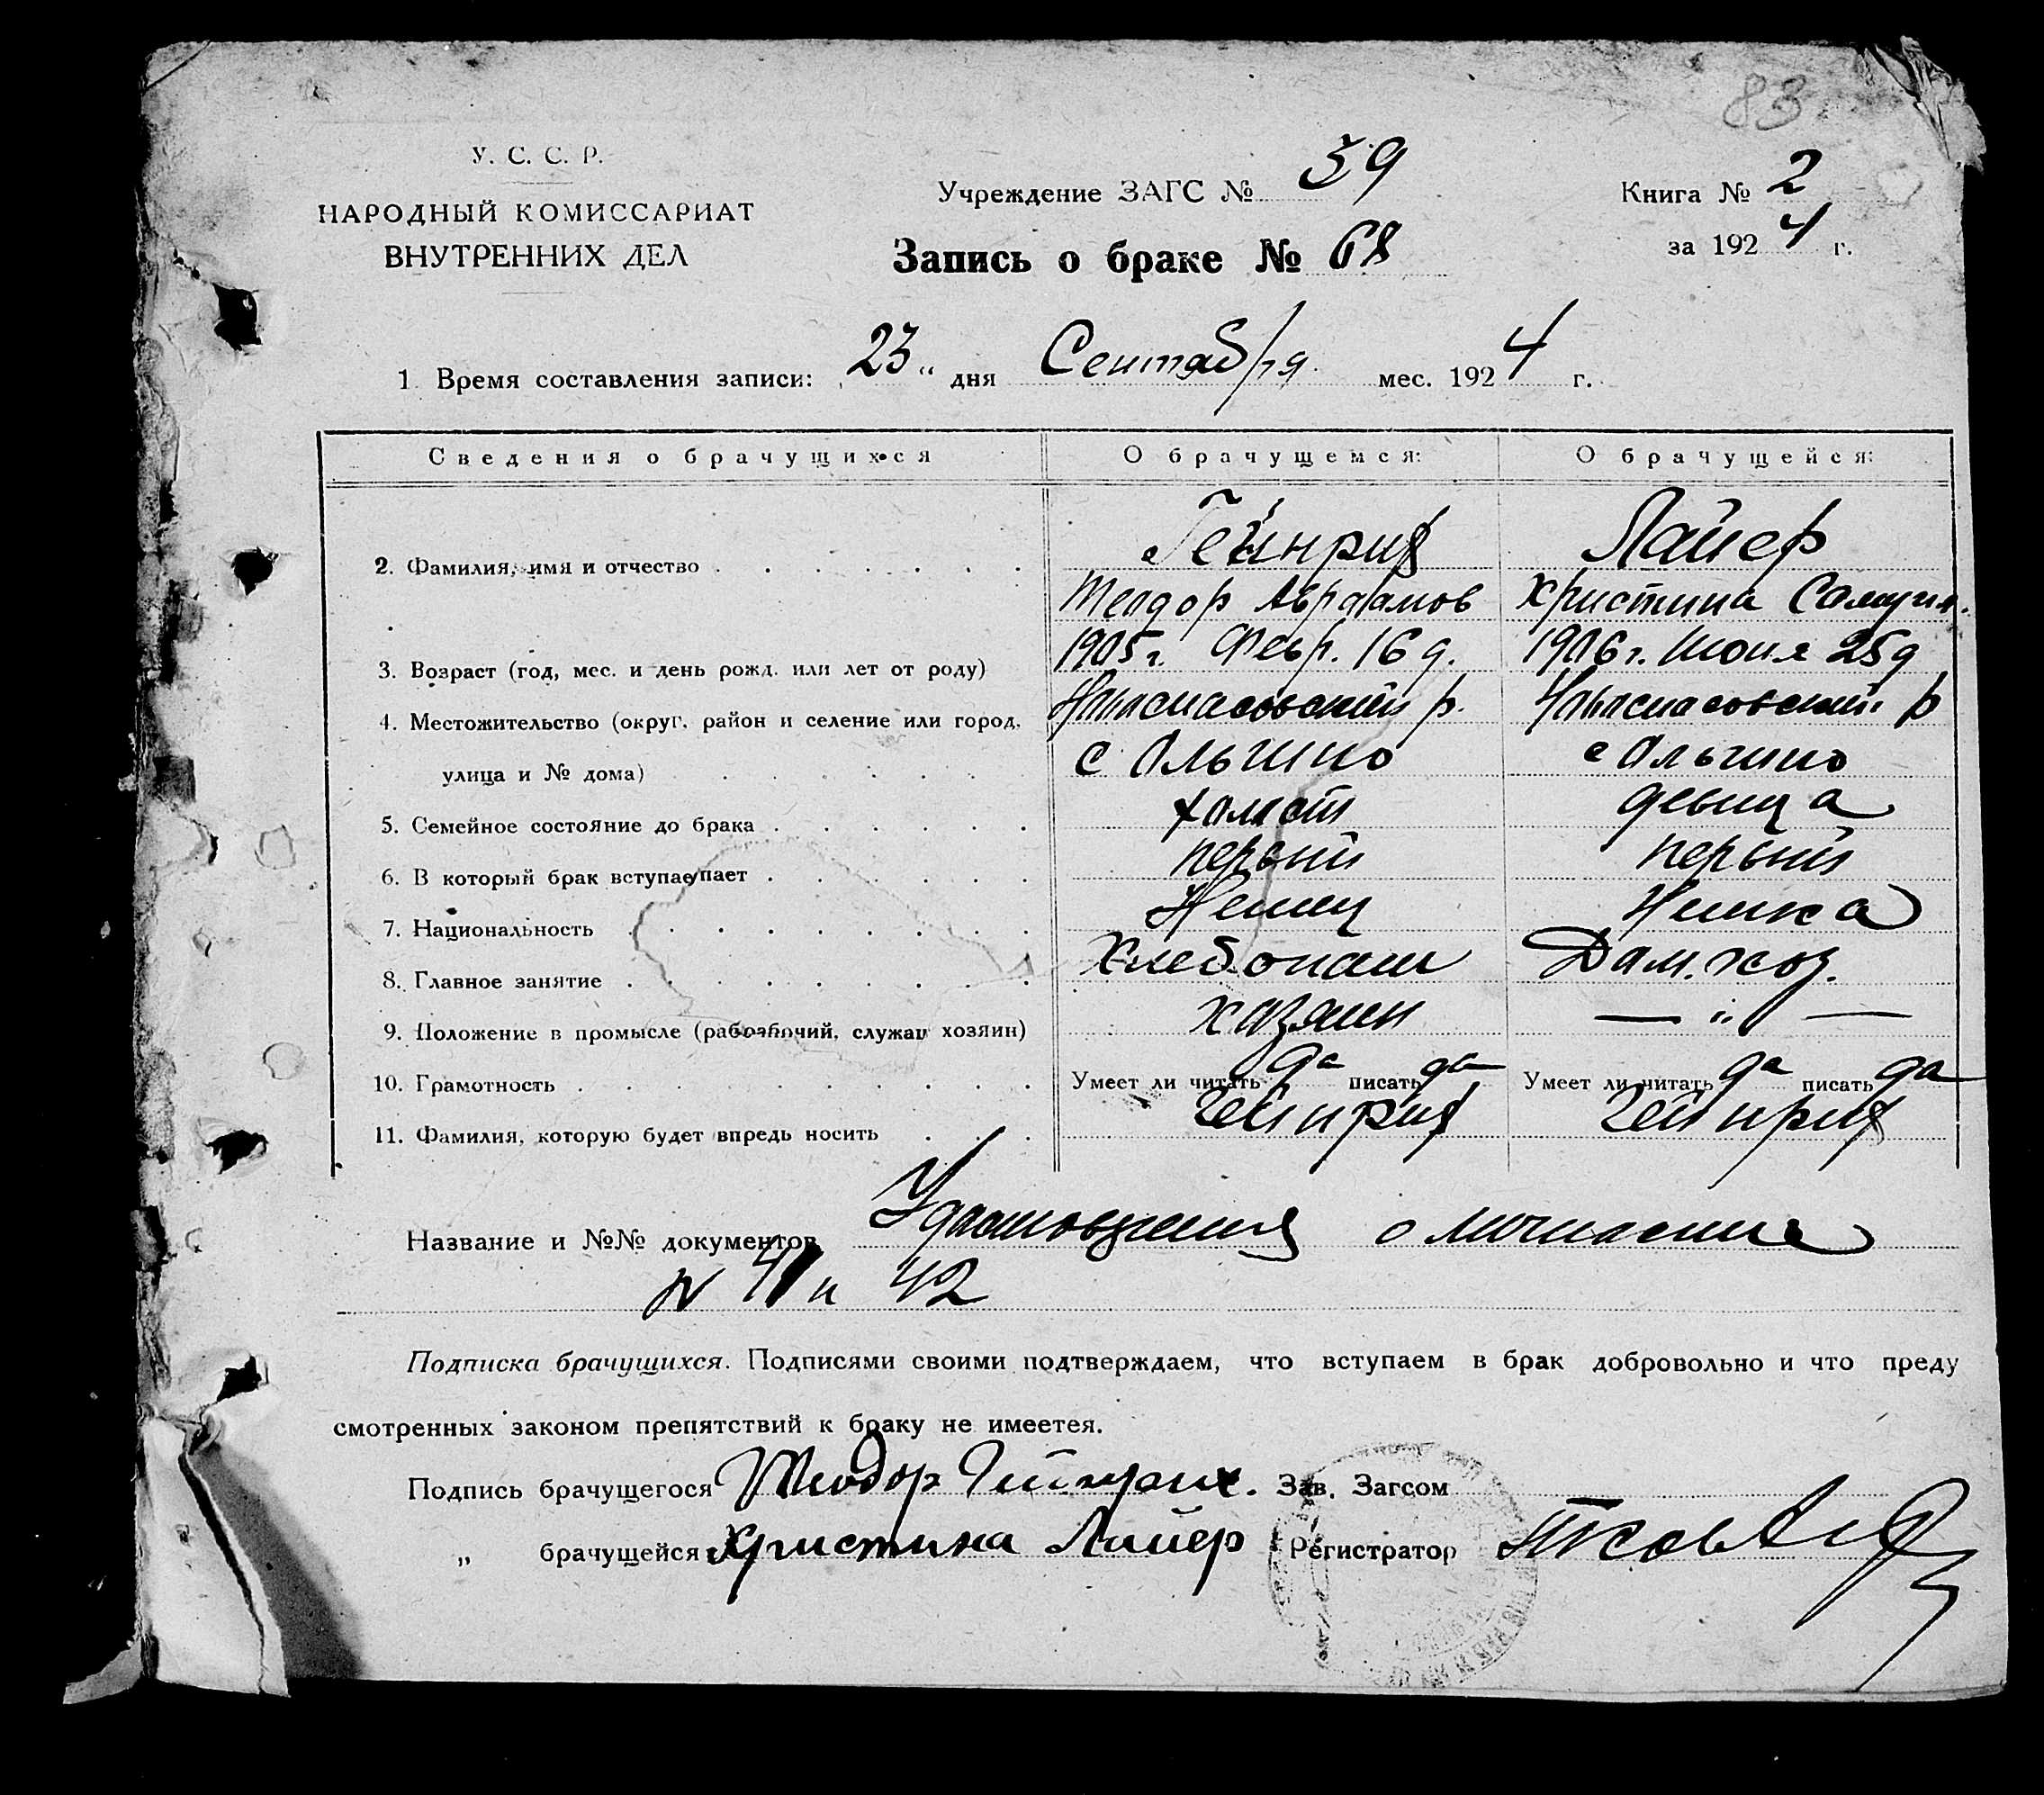 83
У. С. С. Р.
НАРОДНЫЙ КОМИССАРИАТ
ВНУТРЕННИХ ДЕЛ
Учреждение ЗАГС № 39
Запись о браке № 68
Книга № 2
за 1924 г.
1. Время составления записи: „23“ дня Сентября мес. 1924 г.
Сведения о брачущихся О брачущемся: О брачущейся:
2. Фамилия, имя и отчество Гейнрих Лайер
Теодор Авраамов Христина Самуил.
3. Возраст (год, мес. и день рожд. или лет от роду) 1905 г. Февр. 16 д. 1906 г. Июня 25 д
4. Местожительство (округ, район и селение или город, р. р
улица и № дома) с Ольгино с Ольгино
5. Семейное состояние до брака холост девица
6. В который брак вступает первый первый
7. Национальность Немец Немка
8. Главное занятие Хлебопаш Дом. хоз.
9. Положение в промысле (рабочий, служащ хозяин) хозяин — „ —
10. Грамотность Умеет ли читать да писать да Умеет ли читать да писать да
11. Фамилия, которую будет впредь носить Гейнрих Гейнрих
Название и №№ документов Удостоверения о личности
№ 41 и 42
Подписка брачущихся. Подписями своими подтверждаем, что вступаем в брак добровольно и что преду
смотренных законом препятствий к браку не имеетея.
Подпись брачущегося Теодор Гейнрих. Зав. Загсом
„ брачущейся Христина Лайер Регистратор